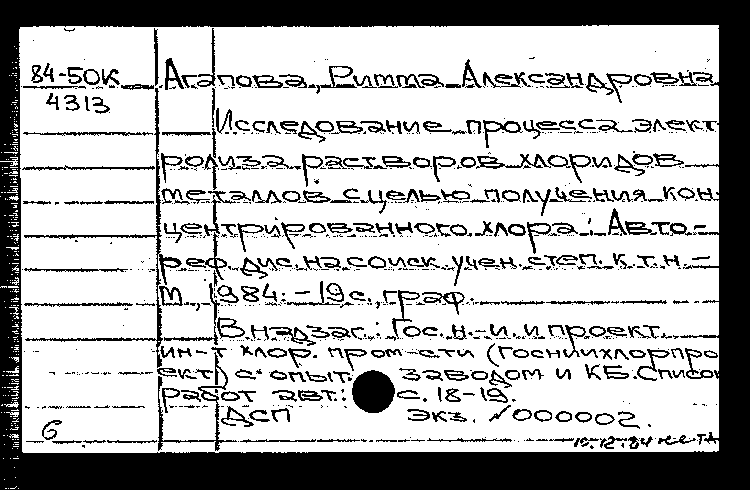 84-50К Агапова, Римма Александровна
4313
Исследование процесса элект-
ролиза растворов хлоридов
металлов с целью получения кон-
центрированного хлора: Авто-
реф. дис. на соиск. учен. степ. к.т.н. –
М, 1984. – 19 с., граф.
В надзаг.: Гос. н.-и. и проект.
ин-т хлор. пром-сти (Госниихлорпро
ект) с опыт. заводом и КБ. Список
работ авт.: с. 18-19.
ДСП экз. №000002.
6
10.12.84